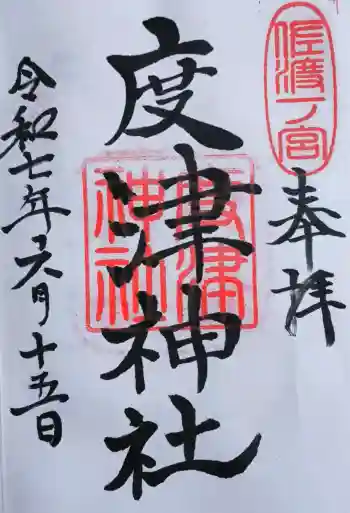 佐渡一ノ宮
奉拝
度津神社
度津神社
令和七年六月十五日